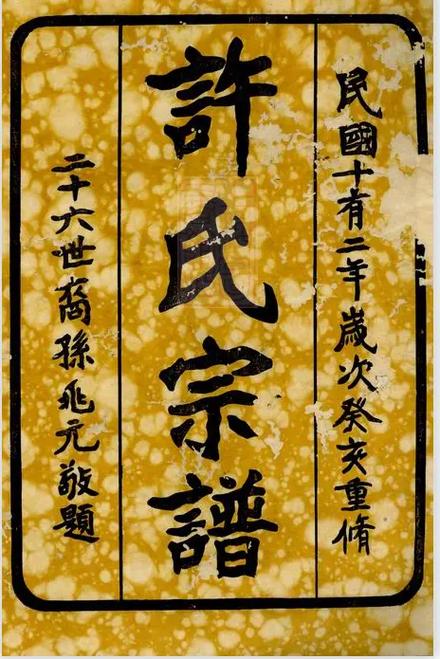 民國十有二年歲次癸亥重脩
許氏宗譜
二十六世裔孫兆元敬題